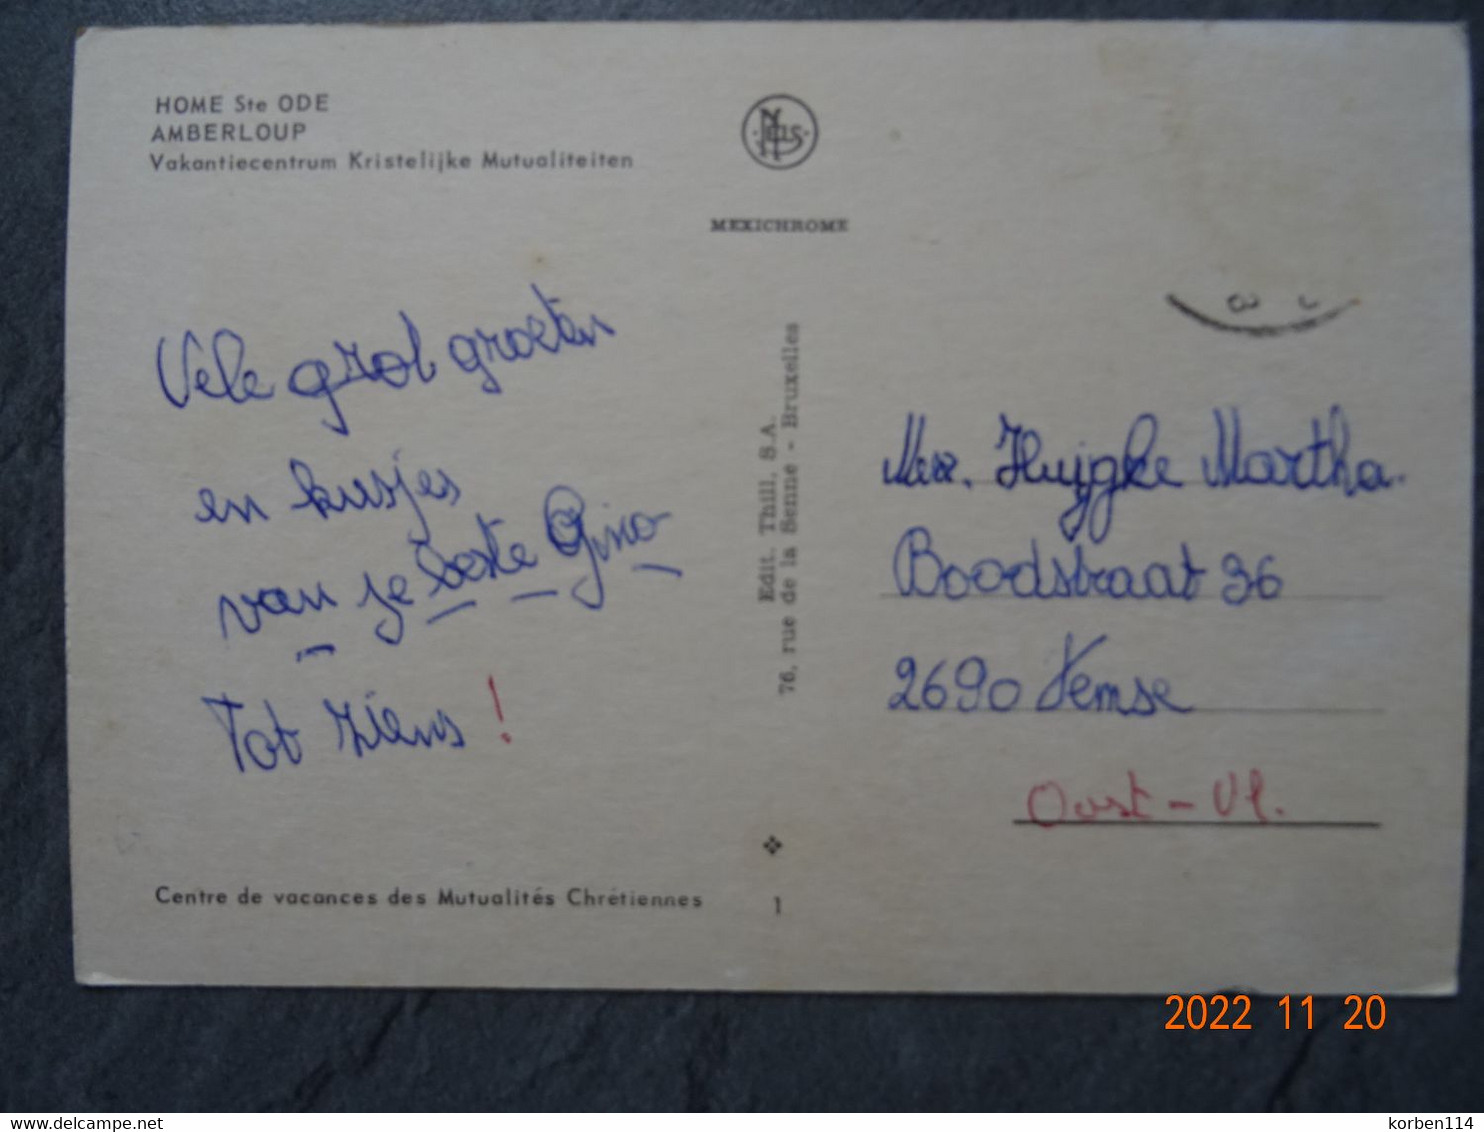 HOME Ste ODE
AMBERLOUP
Vakantiecentrum Kristelijke Mutualiteiten
Nels
MEXICHROME
Vele grot groeten
en kusjes
van je beste Gino
Tot ziens!
Edit. Thill, S.A.
76, rue de la Senne - Bruxelles
Mar. Huygke Martha.
Boodstraat 36
2690 Temse
Oost-Vl.
Centre de vacances des Mutualités Chrétiennes
1
2022 11 20
korben114